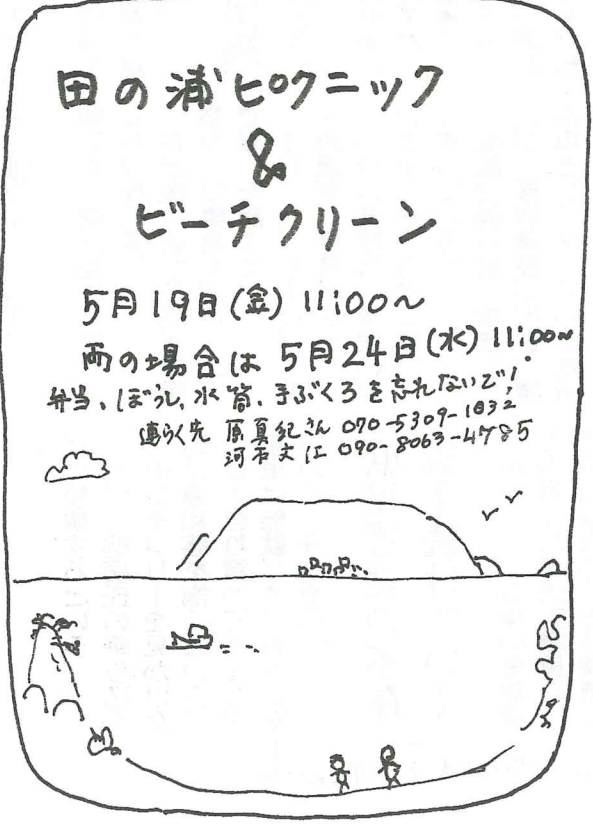 田の浦ピクニック
&
ビーチクリーン
5月19日(金) 11:00〜
雨の場合は 5月24日(水) 11:00〜
弁当、ぼうし、水筒、手ぶくろを忘れないで!
連らく先 原真紀さん 070-5309-1832
河本文江 090-8063-4785